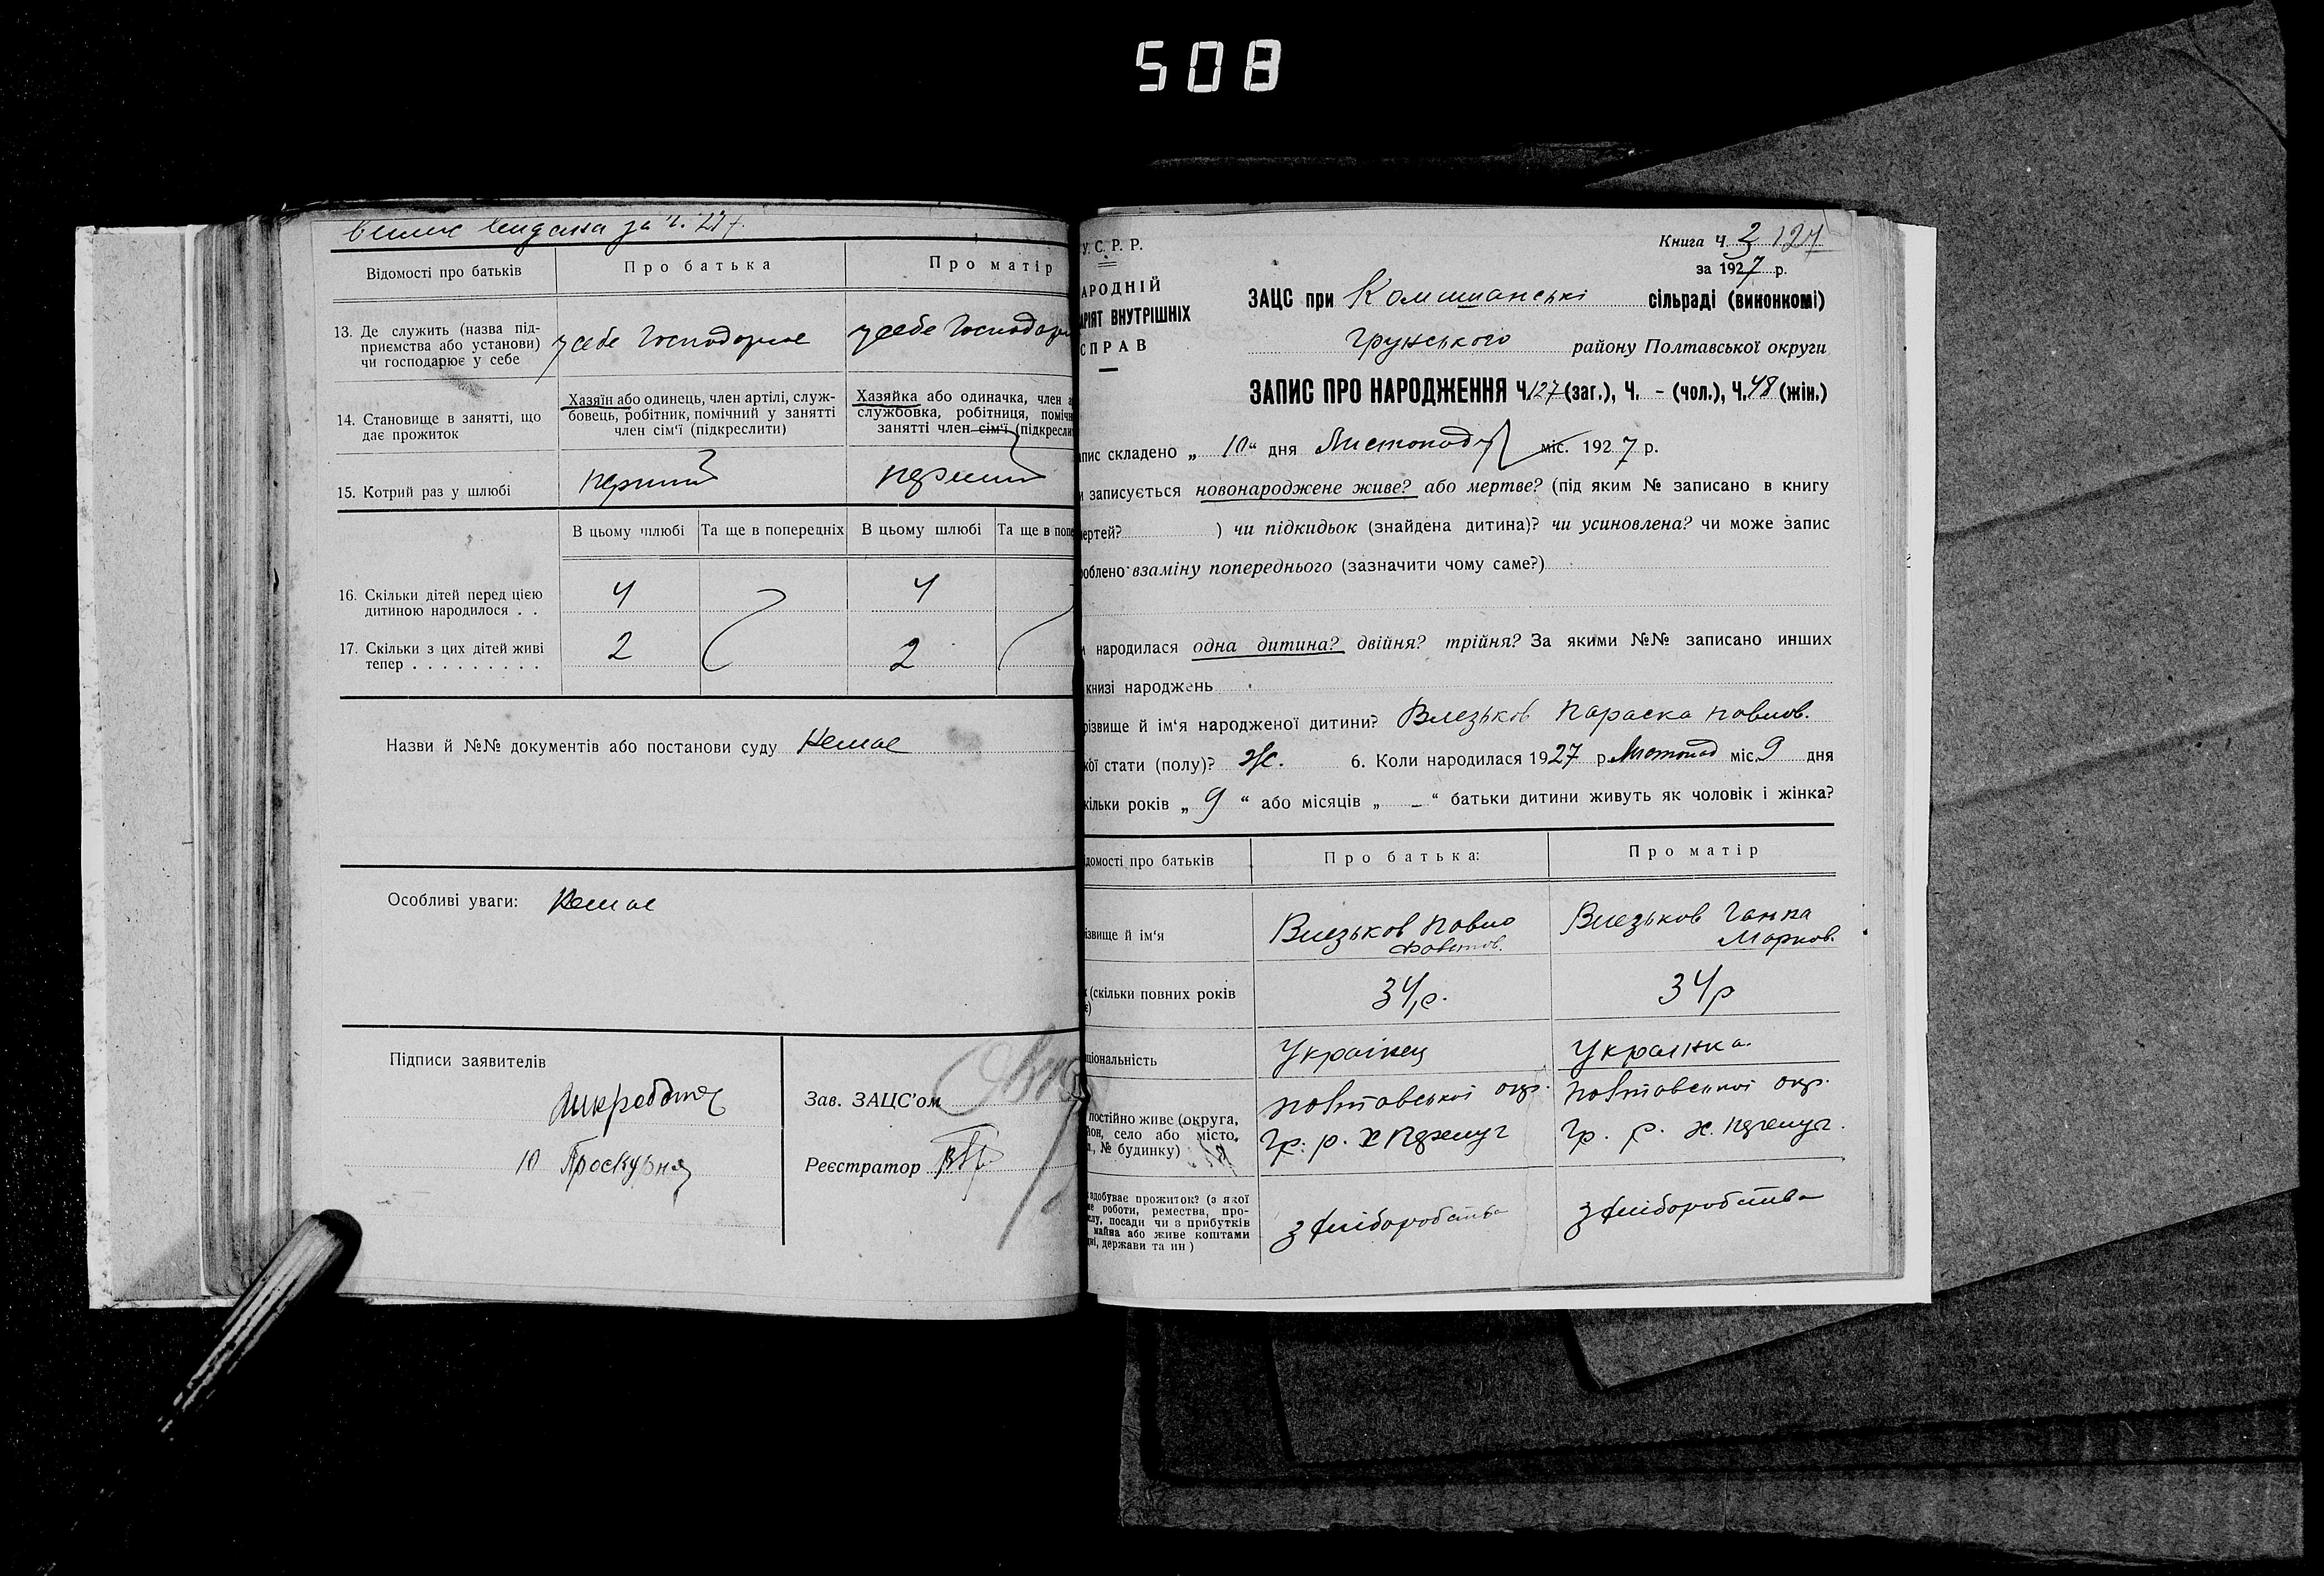 508
за ч. 217.
Відомості про батьків
Про батька
Про матір
13. Де служить (назва під-
приємства або установи)
чи господарює у себе
у себе Господарює
у себе Господарю
14. Становище в занятті, що
дає прожиток
Хазяїн або одинець, член артілі, служ-
бовець, робітник, помічний у занятті
член сім'ї (підкреслити)
Хазяйка або одиначка, член а
службовка, робітниця, поміч
занятті член сім'ї (підкресли
15. Котрий раз у шлюбі
перший
перший
В цьому шлюбі
Та ще в попередніх
В цьому шлюбі
Та ще в попе
16. Скільки дітей перед цією
дитиною народилося . .
4
4
17. Скільки з цих дітей живі
тепер . . . . . . . . .
2
2
Назви й №№ документів або постанови суду Немає
Особливі уваги: Немає
Підписи заявителів
10 Проскурня
Зав. ЗАЦС'ом
Реєстратор
У. С. Р. Р.
АРОДНІЙ
АРІЯТ ВНУТРІШНІХ
СПРАВ
Книга Ч. 3 127
за 1927 р.
ЗАЦС при Комишанські сільраді (виконкомі)
Грунського району Полтавської округи
ЗАПИС ПРО НАРОДЖЕННЯ Ч. 127 (заг.), Ч. - (чол.), Ч. 48 (жін.)
апис складено „ 10 “ дня Листопаду міс. 1927 р.
и записується новонароджене живе? або мертве? (під яким № записано в книгу
мертей? ) чи підкидьок (знайдена дитина)? чи усиновлена? чи може запис
облено взаміну попереднього (зазначити чому саме?)
и народилася одна дитина? двійня? трійня? За якими №№ записано инших
книзі народжень
різвище й ім'я народженої дитини? Влезьков Параска Павлов.
кої стати (полу)? Ж. 6. Коли народилася 1927 р. Листопад міс. 9 дня
кільки років „ 9 “ або місяців „ – “ батьки дитини живуть як чоловік і жінка?
домості про батьків
Про батька:
Про матір
ізвище й ім'я
Влезьков Павло
Влезьков Ганна
Марков.
к (скільки повних років
є)
34 р.
34 р
ціональність
Українец
Украінка.
постійно живе (округа,
йон, село або місто,
л., № будинку)
Полтавської окр.
Гр. р. х
Полтавської окр.
Гр. р. х.
к здобуває прожиток? (з якої
ме роботи, ремества, про-
слу, посади чи з прибутків
майна або живе коштами
дні, держави та ин)
з хліборобства
з хліборобства